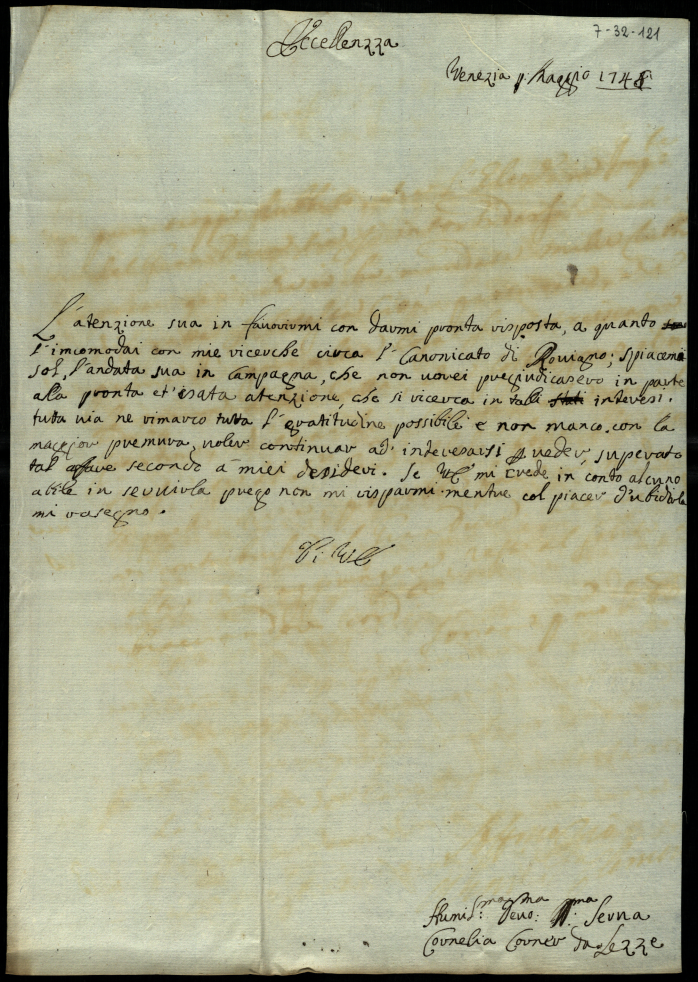 7-32-121
Eccellenzza
Venezia p. Maggio 1748
L'atenzione sua in favorirmi con darmi pronta risposta, a quanto
l'imcomodai con mie ricerche circa l' Canonicato di Rovigno; spiacemi
sol, l'andata sua in Campagna, che non vorei pregiudicasero in parte
alla pronta et' esata atenzione, che si ricerca in tali stati interesi.
tuta via ne rimarco tutta l' gratitudine possibile e non manco. con la
maggior premura, voler continuar ad' interesarsi p veder, superato
tal afare secondo à miei desideri. Se VE mi crede in conto alcuno
abile in servirla prego non mi risparmi mentre col piacer d'ubidirla
mi rasegno.
Di VE
Humis:ma Devo:ma :ma Serva
Cornelia Corner da Lezze